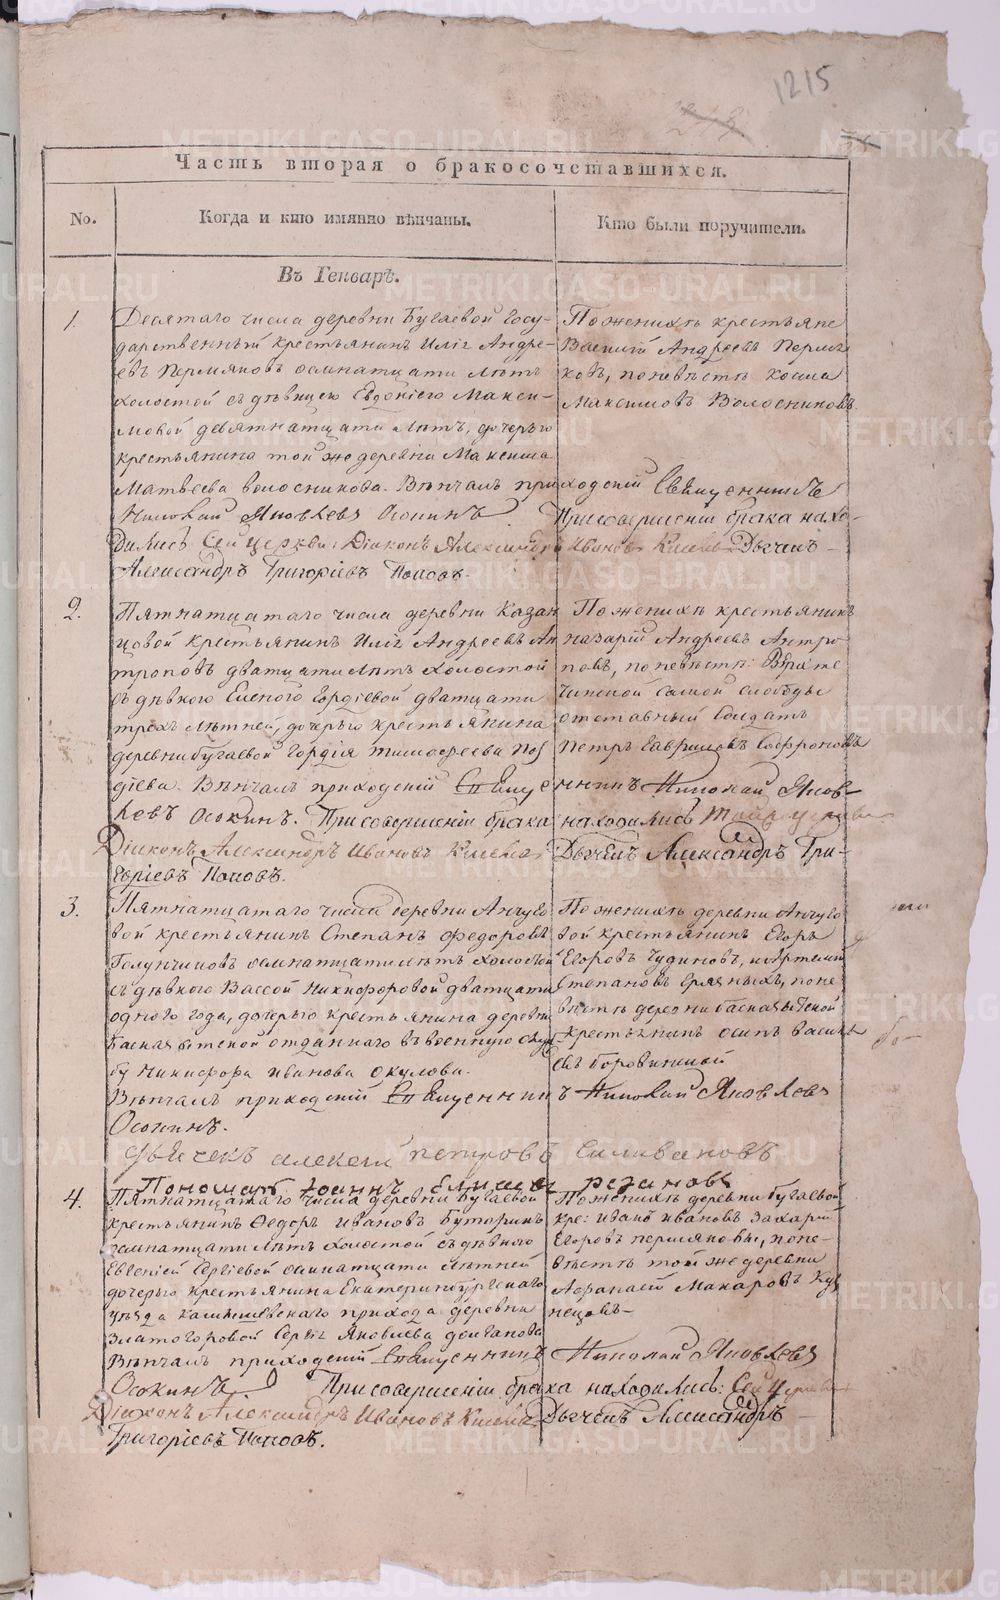 1215
Часть вторая о бракосочетавшихся.
No.
Когда и кто имянно вѣнчаны.
Кто были поручители.
Въ Генварѣ.
1.
Десятаго числа деревни Бугаевой Госу-
дарственный крестьянинъ Илiя Андре-
евъ Пермяковъ осмнатцати лѣтъ
холостой съ дѣвицею Евдокiею Макси-
мовой девятнатцати лѣтъ, дочерью
крестьянина той же деревни Максима
Матвѣева Волосникова. Вѣнчалъ приходскiй Священникъ
Николай Яковлевъ Осокинъ. При совершенiи брака нахо-
дились Сей церкви: Дiаконъ Александръ Ивановъ Дьячекъ
Александръ Григорiевъ Поповъ.
По женихѣ крестьяне
Василiй Андреевъ Пермя-
ковъ, по невѣстѣ Косма
Максимовъ Волосниковъ.
2.
Пятнатцатаго числа деревни Казан
цовой крестьянинъ Илiя Андреевъ Ан
троповъ дватцати лѣтъ холостой
съ дѣвкою Еленою Гордiевой дватцати
трехъ лѣтней, дочерью крестьянина
деревни Бугаевой Гордiя Тимофеева
Вѣнчалъ приходскiй Священникъ Николай Яков-
левъ Осокинъ. При совершенiи брака находились
Дiаконъ Александръ Ивановъ Дьячекъ Александръ Гри-
горiевъ Поповъ.
По женихѣ крестьянинъ
Назарiй Андреевъ Антро-
повъ, по невѣстѣ:
слободы
отставный Солдатъ
Петръ Гавриловъ Софроновъ
3.
Пятнатцатаго числа деревни Анчуго
вой крестьянинъ Степанъ Федоровъ
осмнатцати лѣтъ холостой
съ дѣвкою Вассой Никифоровой дватцати
одного года, дочерью крестьянина деревни
отданнаго въ военную служ
бу Никифора Иванова Окулова.
Вѣнчалъ приходскiй Священникъ Николай Яковлевъ
Осокинъ.
Дьячекъ Алексей Петровъ Селивановъ
Пономарь Iоаннъ
По женихѣ деревни Анчуго
вой крестьянинъ Егоръ
Егоровъ Чудиновъ, и Артемiй
Степановъ по не-
вѣстѣ деревни
крестьянинъ Осипъ Василь
евъ
4.
Пятнатцатаго числа деревни Бугаевой
крестьянинъ Ѳедоръ Ивановъ Буторинъ
осмнатцати лѣтъ холостой съ дѣвкою
Евгенiей Сергiевой осмнатцати лѣтней
дочерью крестьянина Екатеринбургскаго
уѣзда прихода деревни
Златогоровой Сергiя Яковлева
Вѣнчалъ приходскiй Священникъ Николай Яковлевъ
Осокинъ. При совершенiи брака находились: Сей церкви
Дiаконъ Александръ Ивановъ Дьячекъ Александръ
Григорiевъ Поповъ.
По женихѣ деревни Бугаевой
кре: Иванъ Ивановъ Захарiй
Егоровъ Пермяковы, по не-
вѣстѣ той же деревни
Афанасiй Макаровъ Куз
нецовъ
METRIKI.GASO-URAL.RU